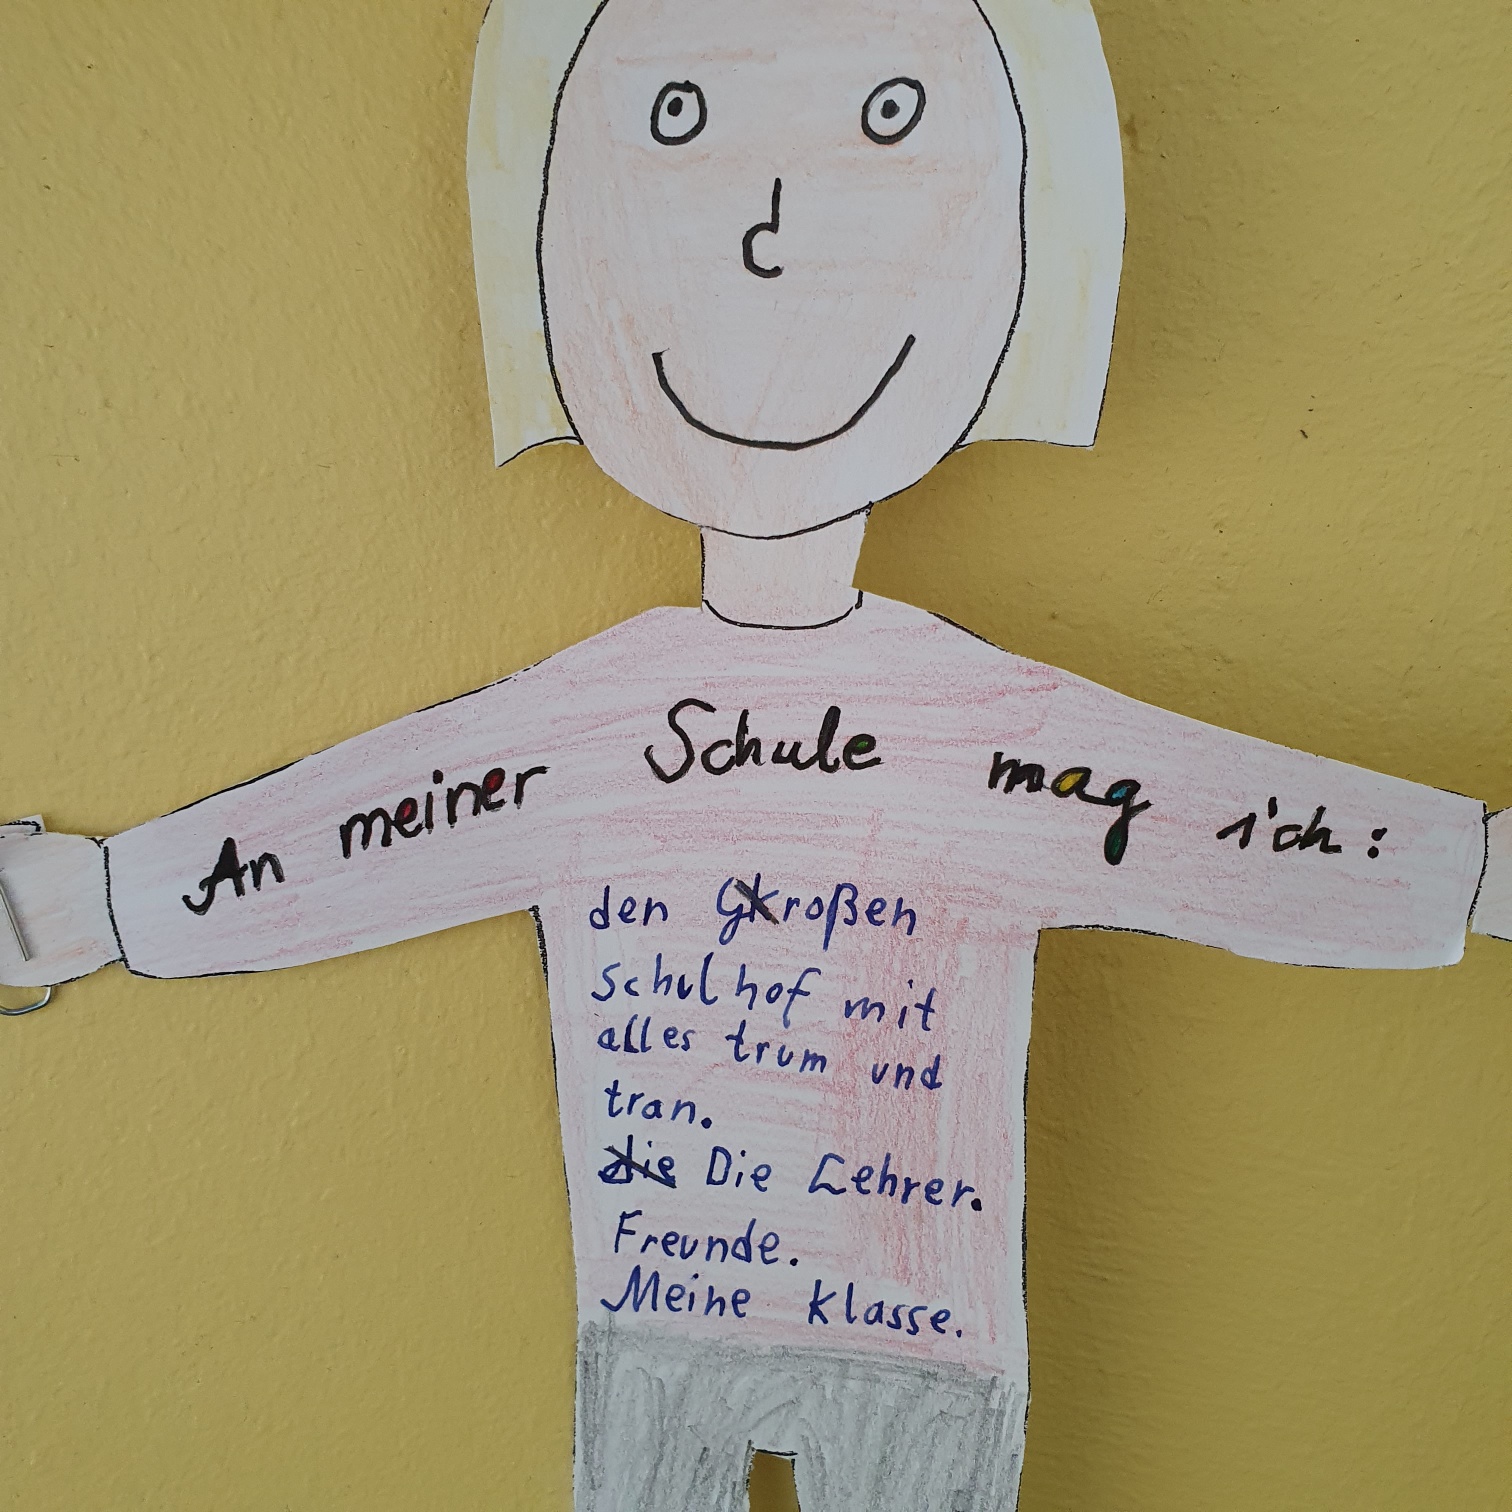 An meiner Schule mag ich:
den Großen
schulhof mit
alles trum und
tran.
die Die Lehrer.
Freunde.
Meine Klasse.